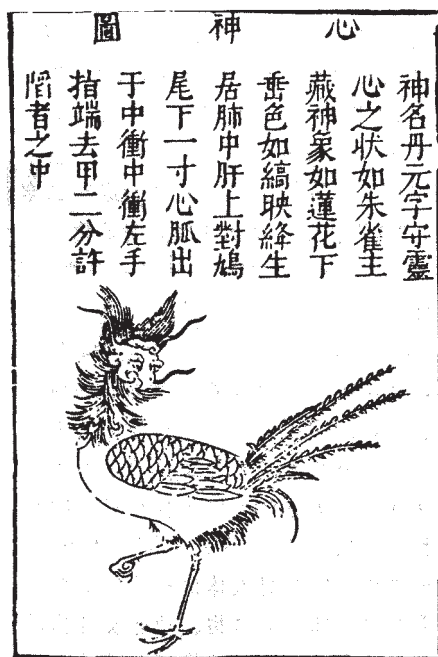 心神圖
神名丹元字守靈
心之狀如朱雀主
藏神象如蓮花下
垂色如縞映絳生
居肺中肝上對鳩
尾下一寸心脈出
于中衝中衝左手
指端去甲二分許
陷者之中